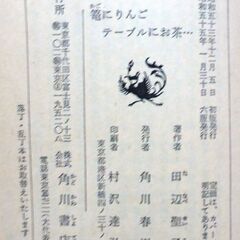 昭和五十三年十二月五日　初版発行
昭和五十五年一月三十日　六版発行
定価は、カバー
明記してあります
篭にりんご
テーブルにお茶…
著作者　田辺聖
発行者　角川春
印刷者　村沢達
東京都港区新橋四ノ三十ノ
行所
東京都千代田区富士見二ノ十三
東京③一九五二〇八
株式会社　角川書店
落丁・乱丁本はお取替えいたします